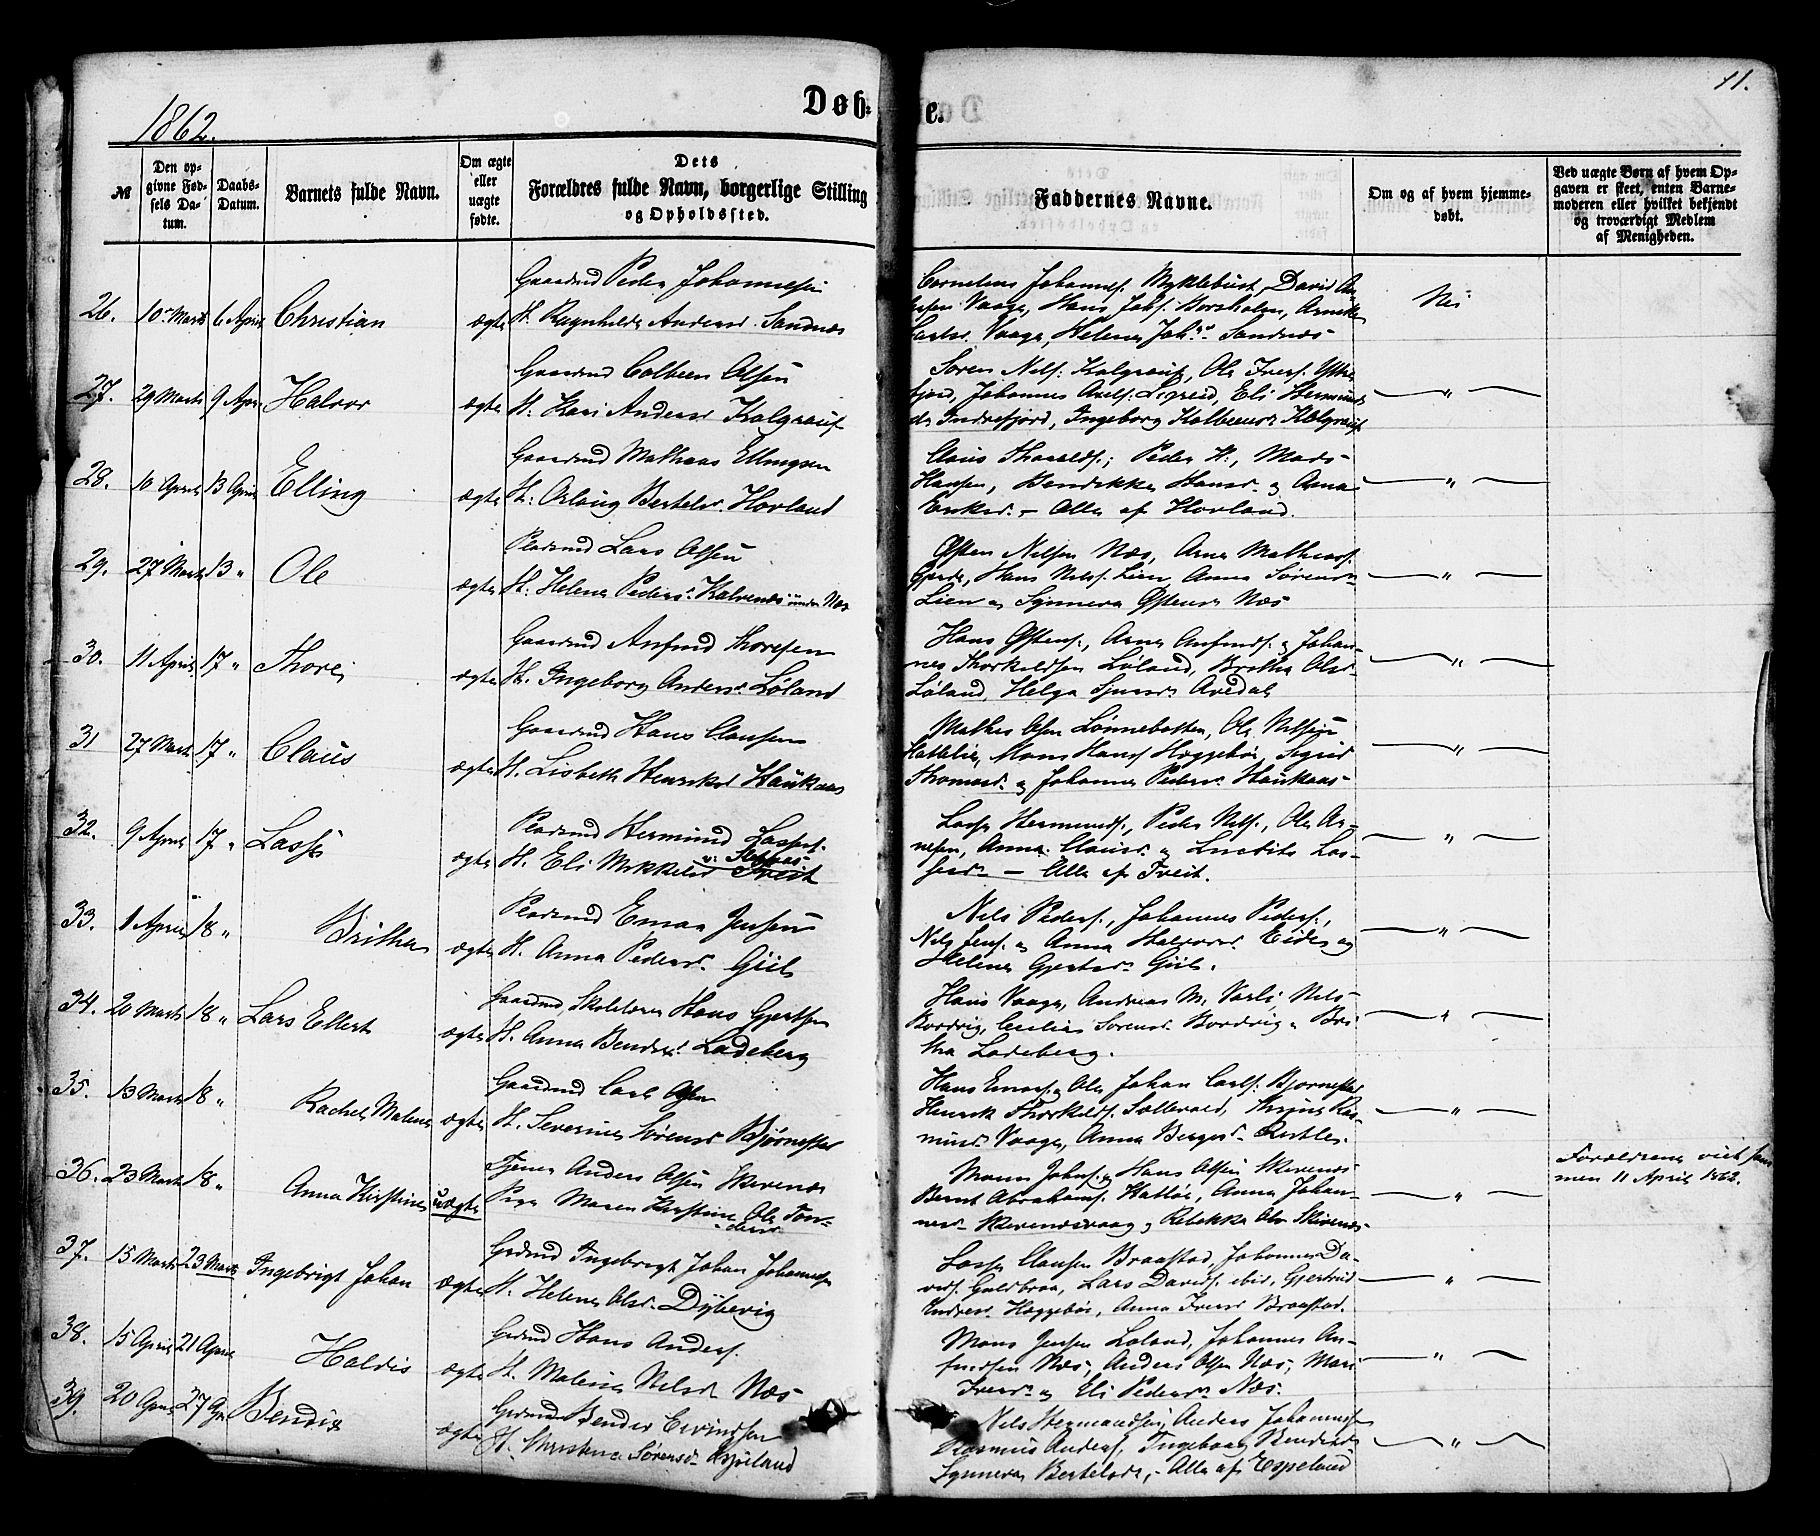 1862.
Døb-
te.
11.
№
Den op-
givne Fød-
sels Da-
tum.
Daabs-
Datum.
Barnets fulde Navn.
Om ægte
eller
uægte
fødte.
Dets
Forældres fulde Navn, borgerlige Stilling
og Opholdssted.
Faddernes Navne.
Om og af hvem hjemme-
døbt.
Ved uægte Børn af hvem Op-
gaven er skeet, enten Barne-
moderen eller hvilket bekjendt
og troværdigt Medlem
af Menigheden.
26. 10 Marts 6 April Christian ægte
Gaardmd Peder Johannesen
H. Ragnhilde Andersd. Sandnæs
Cornelius Johannes. Myklebust, David An-
Vaage, Hans Joh. Arnikke
Vaage, Helene Joh. Sandnæs
Nei
27. 29 Marts 9 Apr. Halvor ægte
Gaardmd Colbeen Olsen
H. Kari Andersd. Kolgrauf
Søren Nels. Kolgrauf, Ole Ivers. Yttre-
fjord, Johannes Axels. Ligreid, Eli Hermunds
dr Indrefjord, Ingeborg Kolbeensd. Kolgrauf
— " —
28. 10 April 13 April Elling ægte
Gaardmd Mathias Ellingsen
H. Oslaug Bertelsd. Hovland
Claus Haralds., Peder H., Mads
Hansen, Bendikke Hansd. og Anna
Eriksd. – Alle af Hovland.
— " —
29. 27 Marts 13 " Ole ægte
Pladsmd Lars Olsen
H. Helene Pedersd. Kalvenæs under Næs
Østen Nilsen Næs, Arne Mathias.
Gjerde, Hans Nils. Lien, Anna Sørensd.
Lien og Synneva Østensd. Næs
— " —
30. 11 April 17 " Thore ægte
Gaardmd Anfind Thoresen
H. Ingeborg Andersd. Løland
Hans Østens., Arne Anfinds. og Johan-
nes Thorkildsen Løland, Britha Olsd.
Løland, Helga Sjursd. Aredal
— " —
31 27 Marts 17 " Claus ægte
Gaardmd Hans Clausen
H. Lisbeth Henriksd. Haukaas
Mathis Olsen Lønnebotten, Ole Nilsen
Mons Hans. Hoggebøe, Sigrid
Thomasd. og Johanne Pedersd. Haukaas
— " —
32. 9 April 17 " Lasse ægte
Pladsmd Hermund Lasses.
H. Eli Mikkelsd. Tveit
Lasse Hermunds., Peder Nils., Ole Ar-
nesen, Anna Clausd. og Las-
sesd. – Alle af Tveit.
— " —
33. 1 April 18 " Britha ægte
Pladsmd Enaa Jensen
H. Anna Pedersd. Giil
Nils Peders., Johannes Peders.,
Nils Jens. og Anna Halvorsd. Eide og
Helene Gjertsd. Giil.
— " —
34. 20 Marts 18 " Lars Ellert ægte
Gaardmd, Skolelærer Hans Gjertsen
H. Anna Bendixd. Ladeberg
Hans Vaage, Andreas M. Varli, Nils
Bordvig, Cecilie Sørensd. Bordvig, Bri-
tha Ladeberg.
— " —
35. 13 Marts 18 " Rachel Malene ægte
Gaardmd Carl Olsen
H. Severine Sørensd. Bjørnestad
Hans Enaas. og Ole Johan Carls. Bjørnestad
Henrik Thorkilds. Sællevold, Ras-
musd. Vaage, Anna Birgesd.
— " —
36. 23 Marts 18 " Anna Kirstine uægte
Tjener Anders Olsen Skivenæs
Pige Maren Kirstine Ole Ton-
desd.
Mons Johs. og Hans Olsen Skivenæs
Bernt Abrahams. Katløe, Anna Johan-
nesd. Skivenæsvaag og Rebekka Olsd. Skivenæs
— " —
Forældrene viet sam-
men 11 April 1862.
37. 15 Marts 23 Marts Ingebrigt Johan ægte
Grdmd Ingebrigt Johan Johannesen
H. Helene Olsd. Dybevig
Lasse Clausen Braastad, Johannes Da-
vids. Guldbraa, Lars Davids. ibid., Gjertrud
Endresd. Hoggebøe, Anna Iversd. Braastad.
— " —
38. 15 April 21 April Haldis ægte
Grdmd Hans Anders.
H. Malene Nilsd. Næs
Mons Jensen Løland, Johannes An-
findsen Næs, Anders Olsen Næs, Mari
Iversd. og Eli Pedersd. Næs.
— " —
39. 20 Apr. 27 Apr. Bendix ægte
Grdmd Bendix Eivindsen
H. Kirstine Sørensd. Espeland
Nils Hermandsen, Anders Johannesen
Rasmus Anders., Ingeborg Bendixd.
Synneva Bertelsd., – Alle af Espeland
— " —